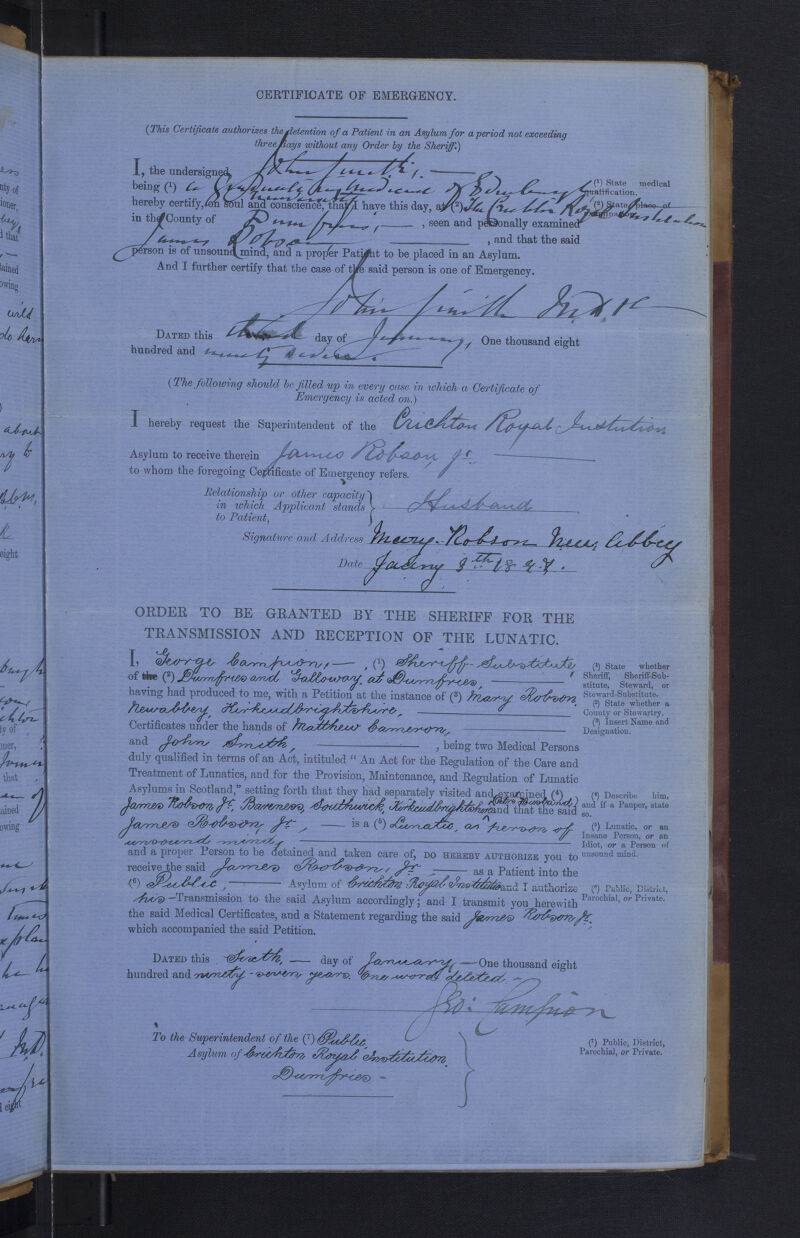 CERTIFICATE OF EMERGENCY.
(This Certificate authorizes the detention of a Patient in an Asylum for a period not exceeding
three days without any Order by the Sheriff.)
I, the undersigned John Smith,
being (¹) a Graduate in Medicine of Edinburgh
(¹) State medical qualification.
hereby certify, on soul and conscience, that I have this day, at (²) The Crichton Royal Institution
(²) State place of examination.
in the County of Dumfries, , seen and personally examined
James Robson , and that the said
person is of unsound mind, and a proper Patient to be placed in an Asylum.
And I further certify that the case of the said person is one of Emergency.
John Smith M.D.
DATED this third day of January, One thousand eight
hundred and ninety seven.
(The following should be filled up in every case in which a Certificate of
Emergency is acted on.)
I hereby request the Superintendent of the Crichton Royal Instution
Asylum to receive therein James Robson, jr.
to whom the foregoing Certificate of Emergency refers.
Relationship or other capacity
in which Applicant stands
to Patient,
Husband
Signature and Address Mary Robson New Abbey
Date Jany 3th 1897.
ORDER TO BE GRANTED BY THE SHERIFF FOR THE
TRANSMISSION AND RECEPTION OF THE LUNATIC.
I, George Campion, (¹) Sheriff-Substitute,
of the (²) Dumfries and Galloway, at Dumfries,
having had produced to me, with a Petition at the instance of (³) Mary Robson,
Newabbey, Kirkcudbrightshire,
Certificates under the hands of Matthew Cameron,
and John Smith, , being two Medical Persons
(¹) State whether
Sheriff, Sheriff-Sub-
stitute, Steward, or
Steward-Substitute.
(²) State whether a
County or Stewartry.
(³) Insert Name and
Designation.
duly qualified in terms of an Act, intituled "An Act for the Regulation of the Care and
Treatment of Lunatics, and for the Provision, Maintenance, and Regulation of Lunatic
Asylums in Scotland," setting forth that they had separately visited and examined (⁴)
James Robson Jr. Bareness, Southwick, Kirkcudbrightshire (Pet's Husband) and that the said
James Robson, Jr., is a (⁵) Lunatic, as person of
unsound mind,
(⁴) Describe him,
and if a Pauper, state
so.
(⁵) Lunatic, or an
Insane Person, or an
Idiot, or a Person of
unsound mind.
and a proper Person to be detained and taken care of, DO HEREBY AUTHORIZE you to
receive the said James Robson, Jr. as a Patient into the
(⁶) Public, Asylum of Crichton Royal Institution and I authorize
his Transmission to the said Asylum accordingly; and I transmit you herewith
the said Medical Certificates, and a Statement regarding the said James Robson Jr.
which accompanied the said Petition.
(⁶) Public, District,
Parochial, or Private.
DATED this Sixth, day of January One thousand eight
hundred and ninety-seven years. One word deleted.
Geo: Campion
To the Superintendent of the (⁷) Public,
Asylum of Crichton Royal Institution,
Dumfries
(⁷) Public, District,
Parochial, or Private.